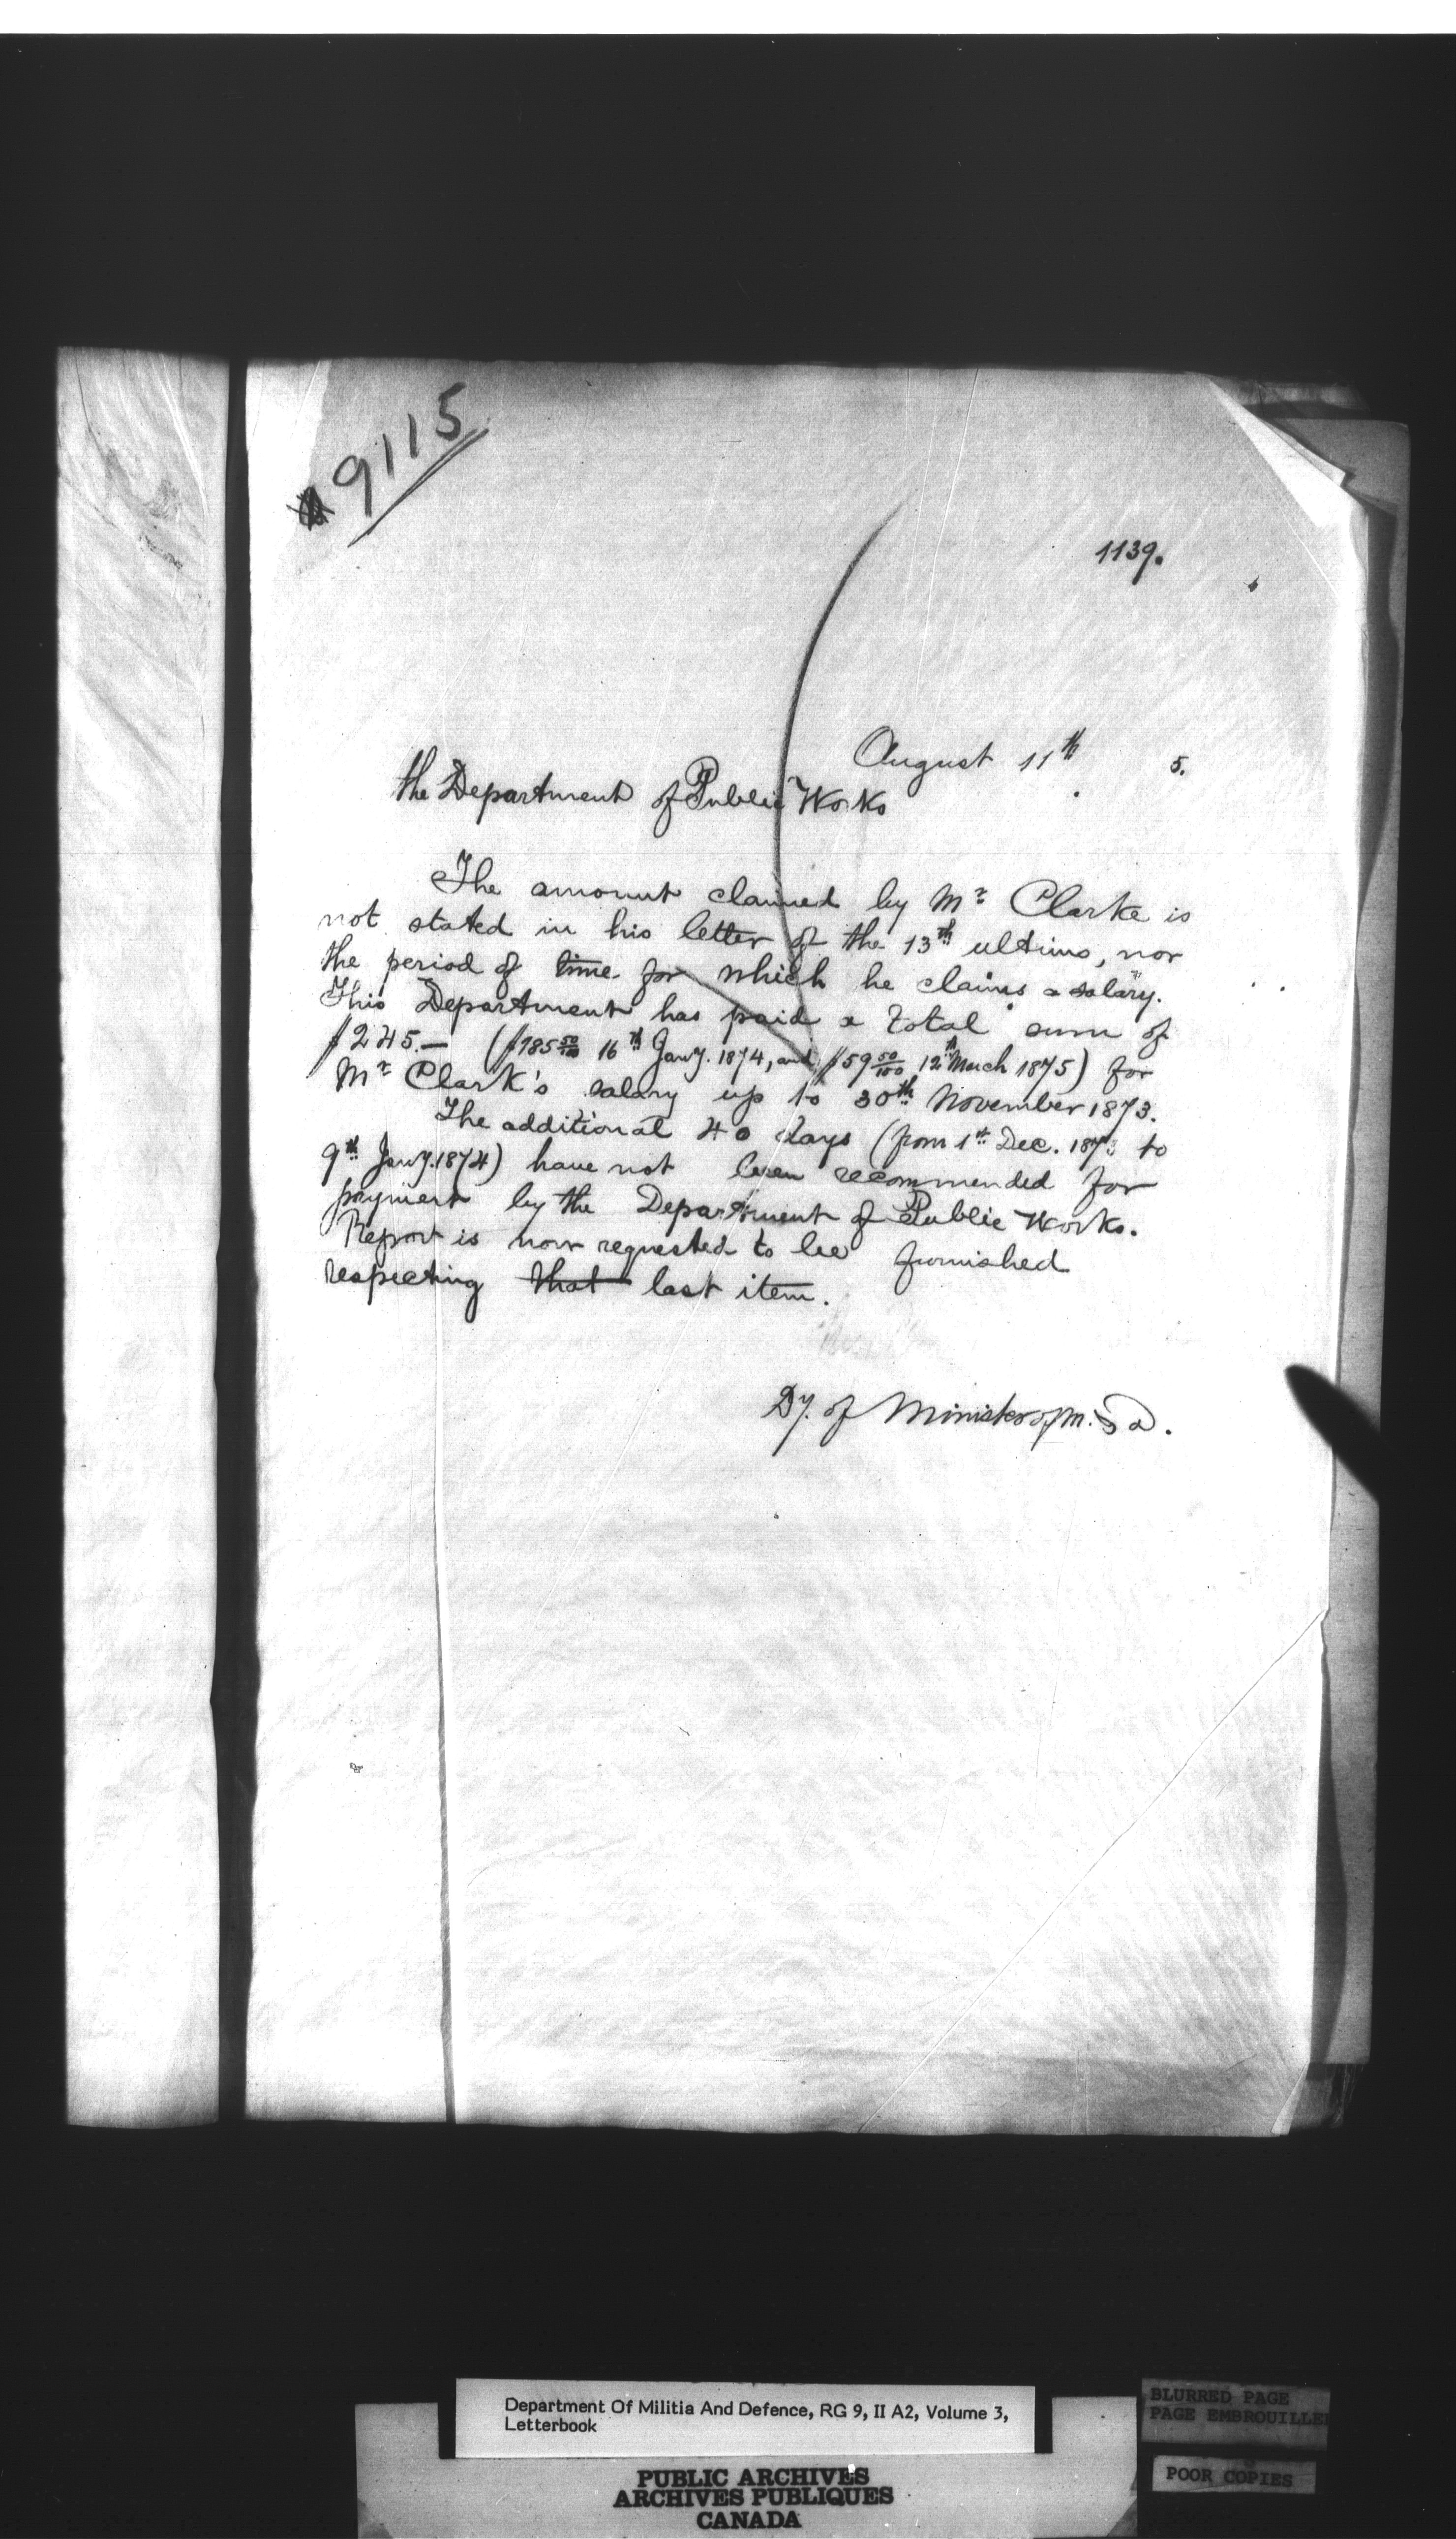 9115
1139.
August 11th 5.
the Department of Public Works
The amount claimed by Mr Clarke is
not stated in his letter of the 13th ultimo, nor
the period of time for which he claims a salary.
This Department has paid a total sum of
$245.— ($185 50/100 16th Jany. 1874, and $59 50/100 12th March 1875) for
Mr Clark's salary up to 30th November 1873.
The additional 40 days (from 1st Dec. 1873 to
9th Jany. 1874) have not been recommended for
payment by the Department of Public Works.
Report is now requested to be furnished
respecting that last item.
Dy. of Minister of M. & D.
Department Of Militia And Defence, RG 9, II A2, Volume 3,
Letterbook
PUBLIC ARCHIVES
ARCHIVES PUBLIQUES
CANADA
BLURRED PAGE
PAGE EMBROUILLE
POOR COPIES